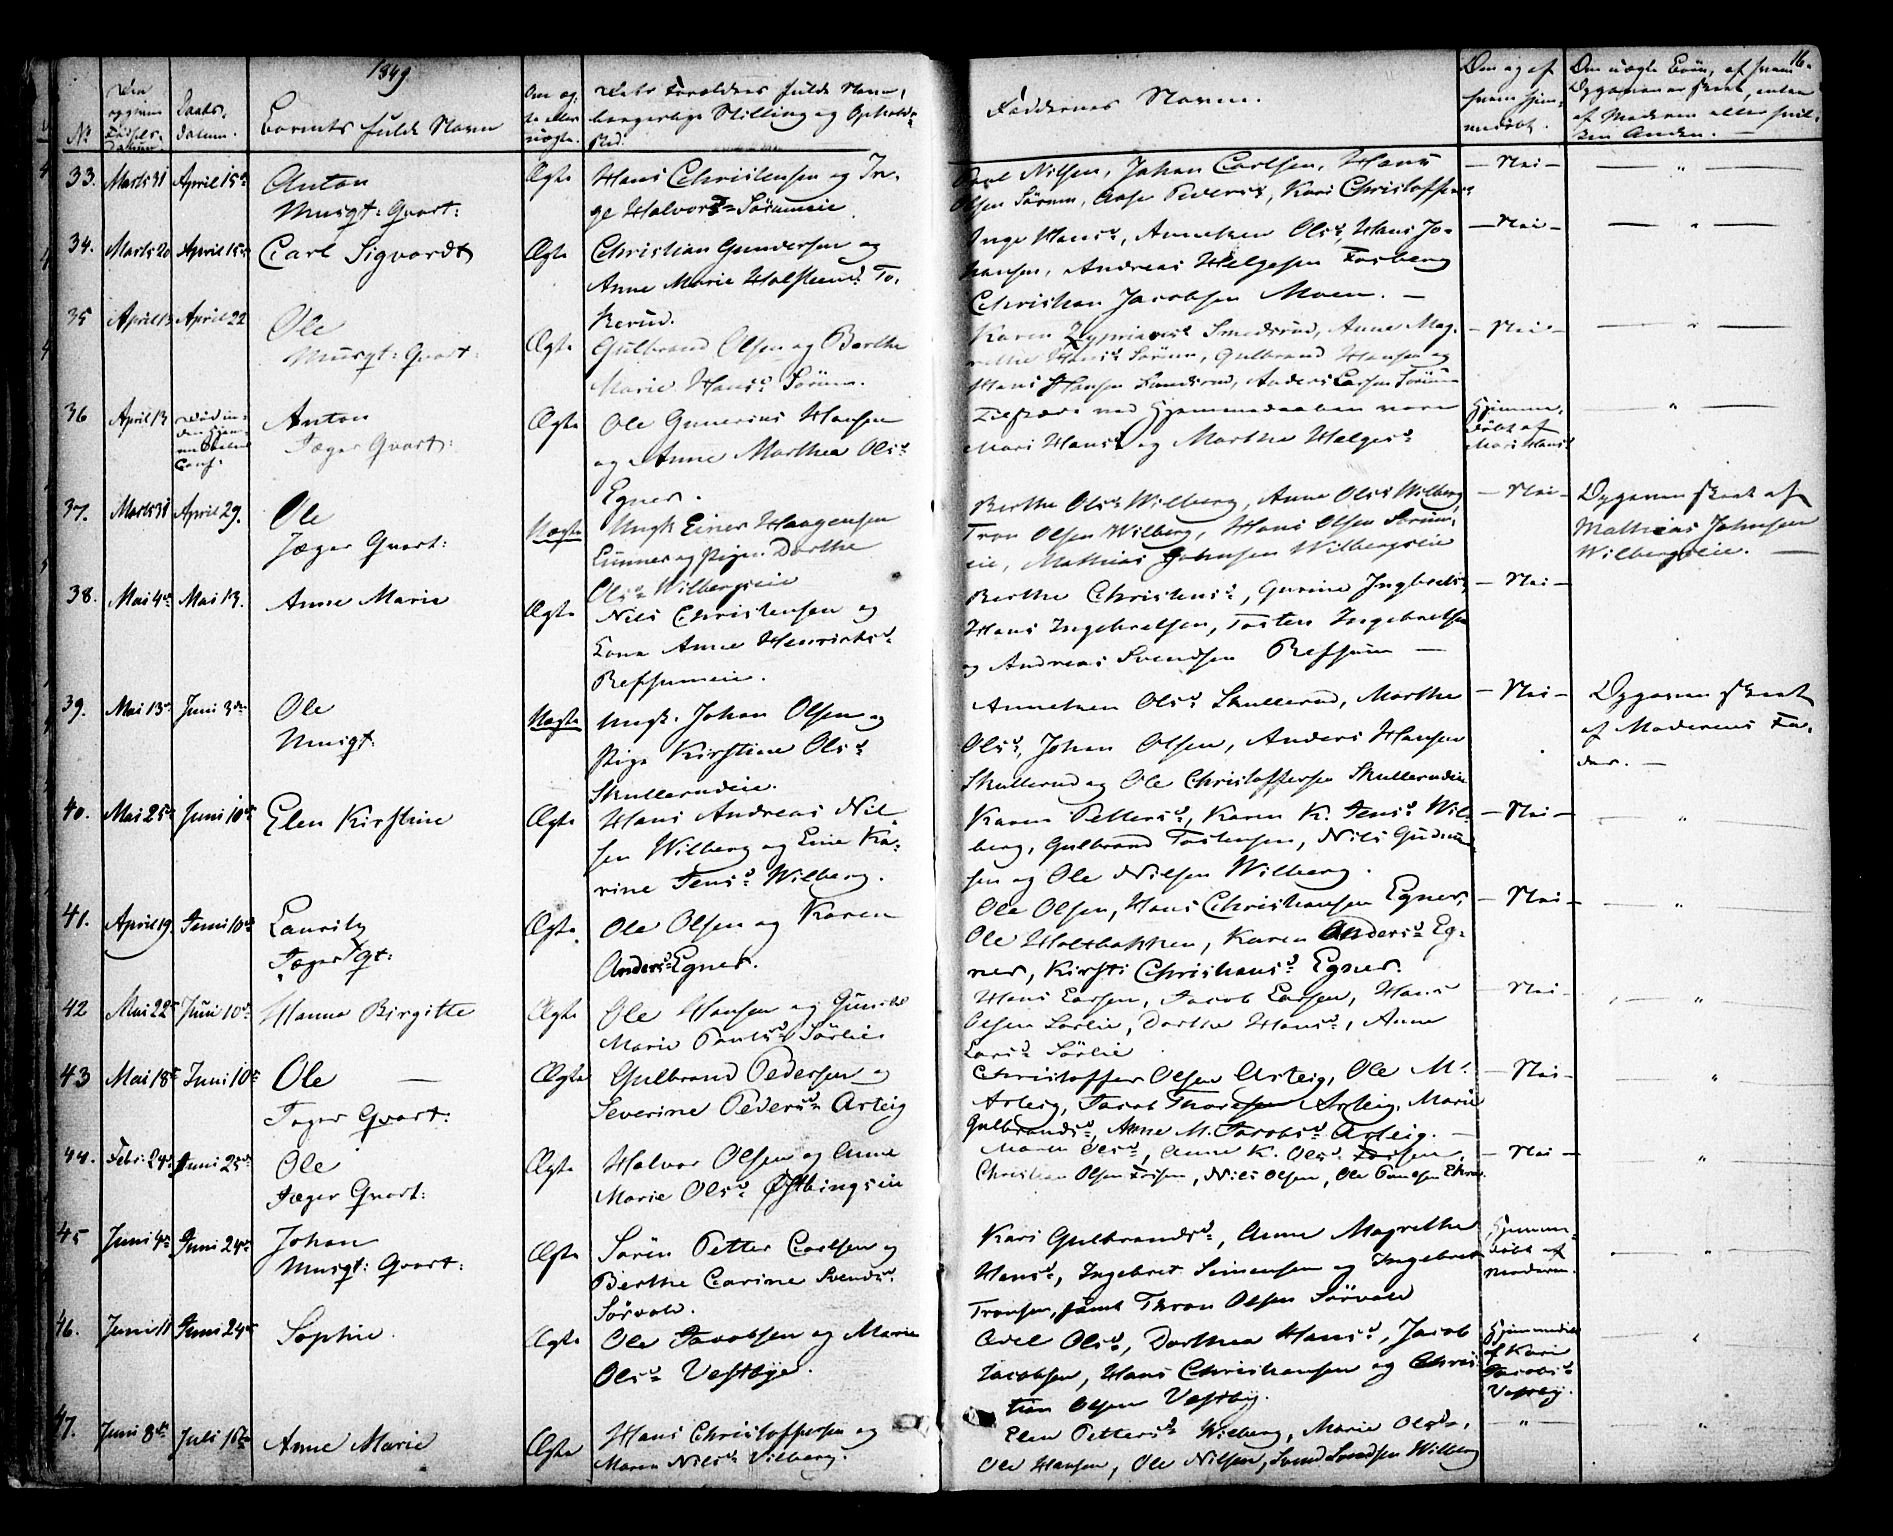 1849
16.
No
Daabs-
datum.
Barnets fulde Navn
Om æg-
te eller
uægte.
Faddernes Navne.
33. Marts 31 April 15de Anton
Musqt: Qvart:
Ægte
Hans Christensen og In-
ge Halvorsd. Sörumeie
Poul Nilsen, Johan Carlsen, Hans
Olsen Sörum, Aase Pedersd, Kari Christoffers
— Nei —
34. Marts 20 April 15de Carl Sigvardt
Ægte
Christian Gundersen og
Anne Marie Halsteensd. To-
kerud.
Inge Hansd, Annetken Olsd, Hans Jo-
hansen, Andreas Helgesen Fosberg
Christian Jacobsen Moen. —
— Nei —
35 April 13 April 22 Ole
Musqt: Qvart:
Ægte
Gulbrand Olsen og Berthe
Marie Hansd Sörum.
Karen Smedsrud, Anne Mag-
rethe Hansd Sörum, Gulbrand Hansen og
Hans Hansen, Anders Larsen Sörum
— Nei —
36 April 13
Anton
Jæger Qvart:
Ægte
Ole Gunerius Hansen
og Anne Marthea Olsd
Egner.
Tilstæde ved Hjemmedaaben vare
Mari Hansd og Marthe Helgesd
Hjemme-
döbt af
Mari Hansd
37. Marts 31 April 29. Ole
Jæger Qvart:
Uægte
Ungk Einer Haagensen
og Pigen Dorthe
Olsd Wilbergseie
Berthe Olsd Wilberg, Anne Olsd Wilberg
Tron Olsen Wilberg, Hans Olsen Sörum-
eie, Mathias Johnsen Wilbergseie
— Nei —
Opgaven skeet af
Mathias Johnsen
Wilbergseie. —
38. Mai 4de Mai 13. Anne Marie
Ægte
Nils Christensen og
Kone Anne Henriksd
Refsumeie.
Berthe Christensd, Gurine Ingbretsd,
Hans Ingebretsen, Tosten Ingebretsen
og Andreas Svendsen Refsum —
— Nei —
39. Mai 13de Juni 3die Ole
Musqt:
Uægte
Ungk. Johan Olsen og
Pige Kirstine Olsd
Skullerudeie.
Annetken Olsd Skullerud, Marthe
Olsd, Johan Olsen, Anders Hansen
Skullerud og Ole Christoffersen Skullerudeie
— Nei —
Opgaven skeet
af Moderens Fa-
der. —
40. Mai 25de Juni 10de Elen Kirstine
Ægte
Hans Andreas Nil-
sen Wilberg og Eine Ka-
rine Jensd Wilberg.
Karen Pettersd, Karen K. Jensd Wil-
berg, Gulbrand Tostensen, Nils Gudmun-
sen og Ole Nilsen Wilberg.
— Nei —
41. April 19. Juni 10de Lauritz
Jæger Qt:
Ægte
Ole Olsen og Karen
Andersd Egner.
Ole Olsen, Hans Christiansen Egner,
Ole Holtbakken, Karen Andersd Eg-
ner, Kirsti Christiansd Egner.
— Nei —
42 Mai 22de Juni 10de Hanna Birgitte
Ægte
Ole Hansen og Gunild
Marie Paulsd Sörlie
Hans Larsen, Jacob Larsen, Hans
Olsen Sörlie, Dorthe Hansd, Anne
Larsd Sörlie.
— Nei —
43 Mai 18de Juni 10de Ole —
Jæger Qvart:
Ægte
Gulbrand Pedersen og
Severine Pedersd Arteig
Christoffer Olsen Arteig, Ole M.
Arteig, Jacob Thoresen Arteig, Marie
Gulbrandsd, Anne M. Jacobsd Arteig. —
— Nei —
44. Febr. 24de Juni 25de Ole
Jæger Qvart:
Ægte
Halvor Olsen og Anne
Marie Olsd Östbingseie
Maren Olsd, Anne K. Olsd
Christian Olsen, Nils Olsen, Ole Paulsen
— Nei —
45 Juni 4de Juni 24de Johan
Musqt: Qvart:
Ægte
Sören Petter Carlsen og
Berthe Carine Svendsd
Sörvald.
Kari Gulbrandsd, Anne Magrethe
Hansd, Ingebret Simensen og Ingebret
Tronsen, samt Thron Olsen Sörvald
Hjemme-
döbt af
Moderen.
46. Juni 11 Juni 24de Sophie.
Ægte
Ole Jacobsen og Marie
Olsd Vestbye.
Adel Olsd, Dorthea Hansd, Jacob
Jacobsen, Hans Christiansen og Chris-
tian Olsen Vestby.
Hjemmedöbt
af Kari
Jacobsd
Vestby.
47. Juni 8de Juli 15de Anne Marie
Ægte
Hans Christoffersen og
Maren Nilsd Vilberg.
Elen Pettersd Wilberg, Marie Olsd,
Ole Hansen, Ole Nilsen, Svend Svendsen Wilberg